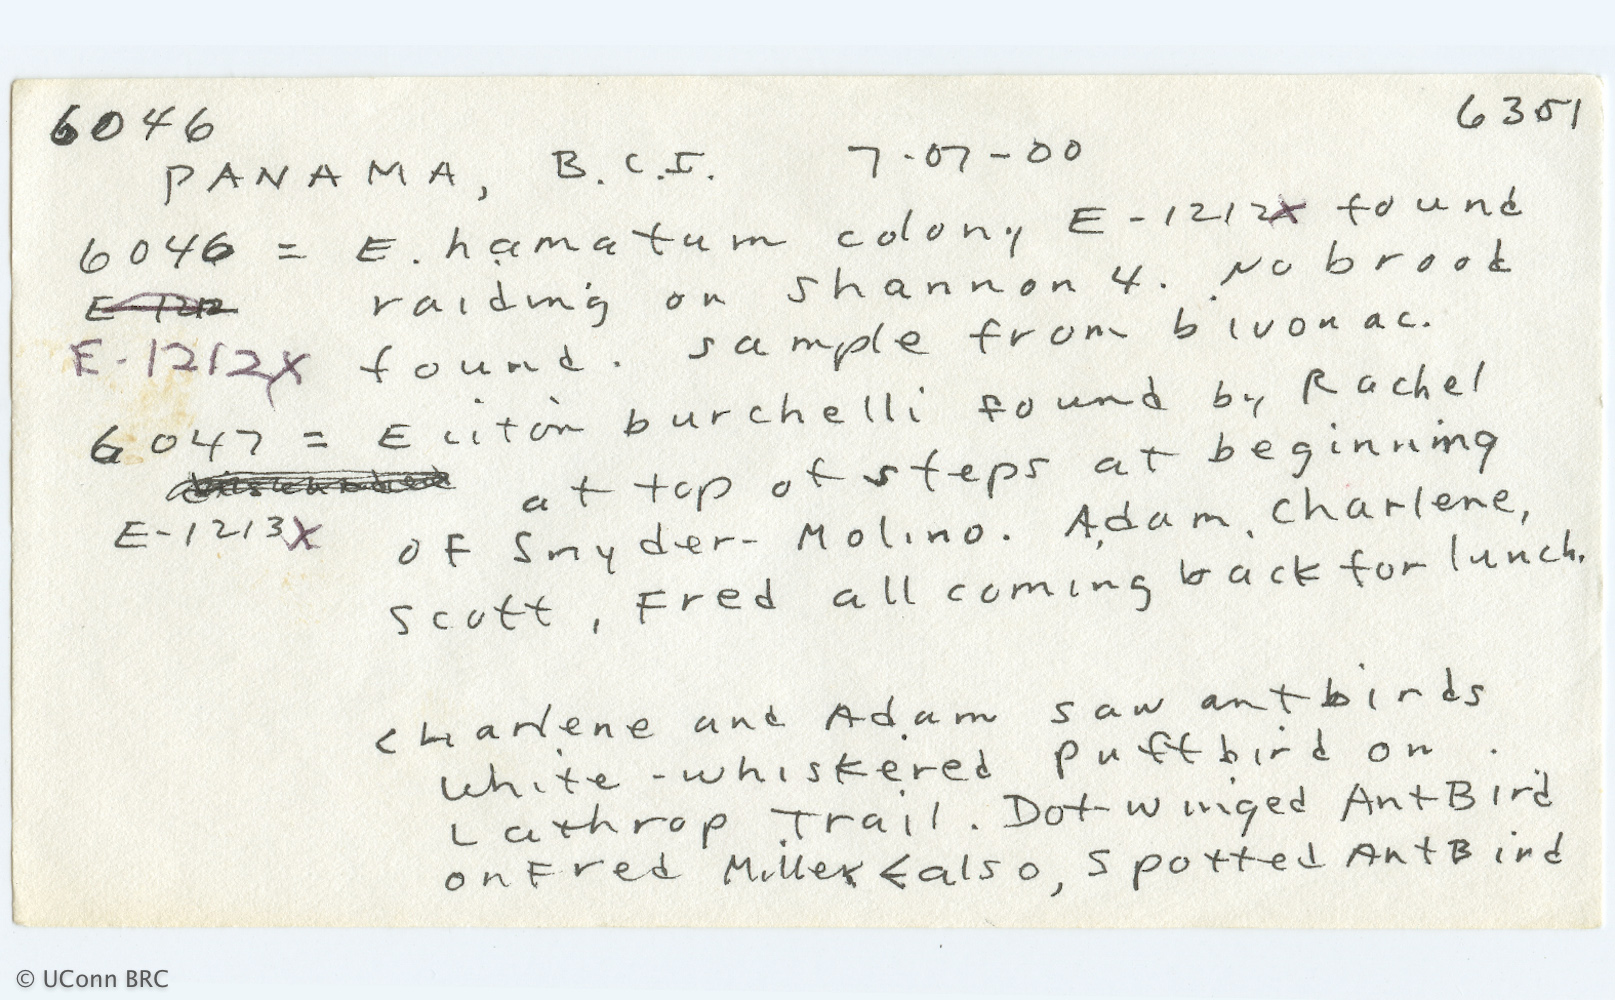 6046 6351
PANAMA, B.C.I. 7-07-00
6046 = E. hamatum colony E-1212X found
E-1212 raiding on Shannon 4. No brood
E-1212X found. Sample from bivouac.
6047 = Eciton burchelli found by Rachel
at top of steps at beginning
E-1213X of Snyder-Molino. Adam, Charlene,
Scott, Fred all coming back for lunch.
Charlene and Adam saw antbirds
White-whiskered Puffbird on
Lathrop Trail. Dot-winged AntBird
on Fred Miller also, Spotted AntBird
© UConn BRC